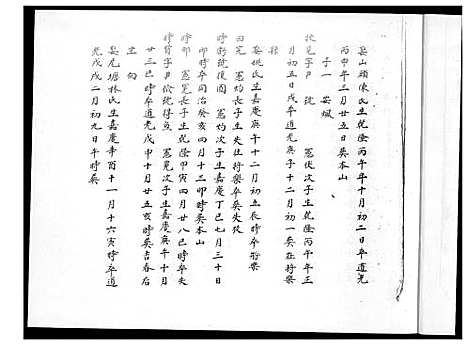 娶山頭陳氏生乾隆丙午年十月初二日卒道光
丙申年三月廿五日葬本山
子一 安斌
扶冕字尸 號 憲俠次子生乾隆丙午年五
月初五日戌卒道光庚子十二月初一葬莊將樂
縣
娶姚氏生嘉慶庚午十二月初五辰時卒將樂
田冕 憲灼長子生失往將樂卒葬失攷
時新號復圓 憲灼次子生嘉慶丁巳七月三十日
卯時卒同治癸亥四月十三卯時葬本山
時卿 憲冕長子生乾隆甲寅四月廿八巳時卒失
時賓字尸 號得立 憲冕次子生嘉慶庚午十月
廿三巳時卒道光戊申十月廿五亥時葬吉春石
主向
娶尾塘林氏生嘉慶辛酉十一月十六寅時卒道
光戊戌二月初九日午時葬